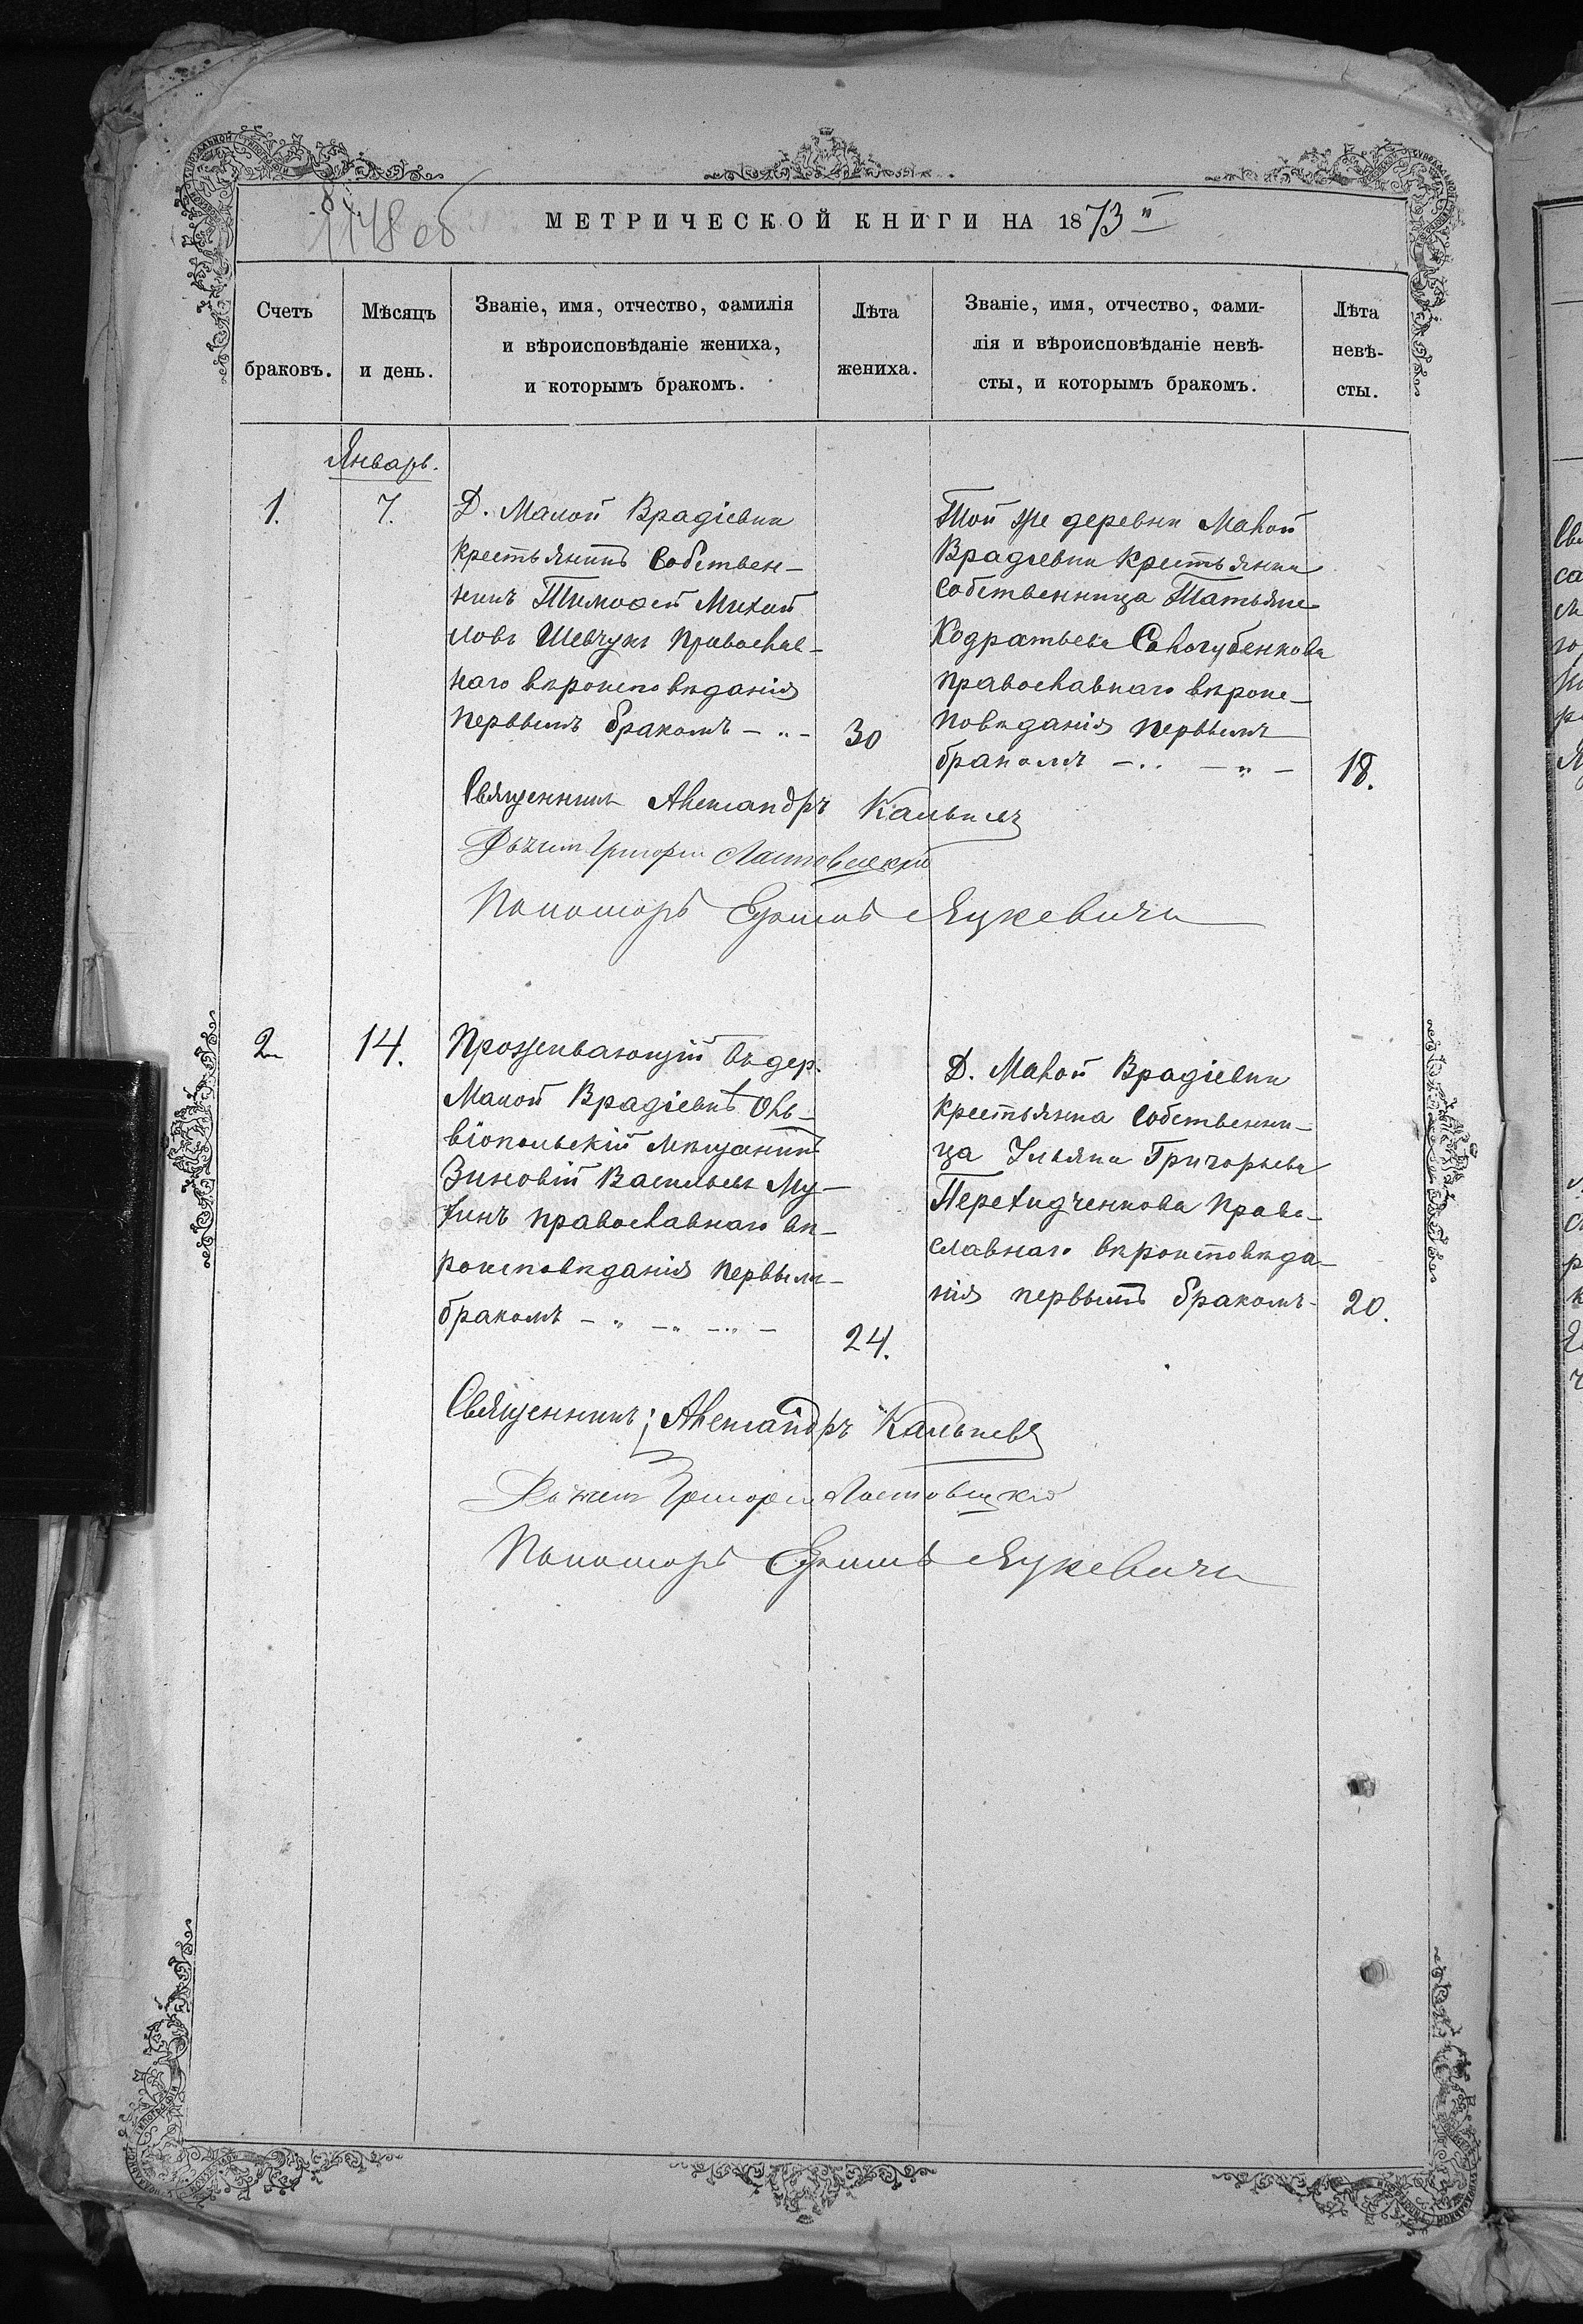 1148 об
МЕТРИЧЕСКОЙ КНИГИ НА 1873
Счетъ браковъ.
Мѣсяцъ и день.
Званіе, имя, отчество, фамилія
и вѣроисповѣданіе жениха,
и которымъ бракомъ.
Лѣта жениха.
Званіе, имя, отчество, фами-
лія и вѣроисповѣданіе невѣ-
сты, и которымъ бракомъ.
Лѣта невѣ-
сты.
Январь.
1.
7.
Д. Малой Врадіевки
крестьянинъ Собствен-
никъ Тимофей Михай
ловъ Шевчукъ Православ-
наго вѣроисповѣданія
первымъ бракомъ
30
Той же деревни Малой
Врадіевки крестьянка
собственница Татьяна
Кодратьева Сологубенкова
православнаго вѣроис-
повѣданія первымъ
бракомъ
18.
Священникъ Александръ
Григорій Ластовецкій
Пономарь Яцкевичъ
2
14.
Проживающій въ дер.
Малой Врадіевкѣ Оль-
віопольскій мѣщанинъ
Зиновій Васильевъ Му-
хинъ православнаго вѣ-
роисповѣданія первымъ
бракомъ
24.
Д. Малой Врадіевки
крестьянка собственни-
ца Ульяна Григорьева
Перехидченкова Право-
славнаго вѣроисповѣда-
нія первымъ бракомъ
20.
Священникъ: Александръ
Григорій Ластовецкій
Пономарь Яцкевичъ